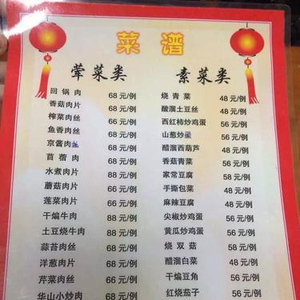 菜谱
荤菜类
回锅肉 68元/例
香菇肉片 68元/例
榨菜肉丝 68元/例
鱼香肉丝 68元/例
京酱肉丝 68元/例
苜蓿肉 68元/例
水煮肉片 88元/例
蘑菇肉片 66元/例
莲菜肉片 66元/例
干煸牛肉 88元/例
土豆烧牛肉 88元/例
蒜苔肉丝 88元/例
洋葱肉片 68元/例
芹菜肉丝 66元/例
华山小炒肉 68元/例
素菜类
烧青菜 48元/例
酸溜土豆丝 48元/例
西红柿炒鸡蛋 56元/例
山葱炒 56元/例
醋溜西葫芦 48元/例
香菇青菜 56元/例
家常豆腐 58元/例
手撕包菜 48元/例
麻辣豆腐 48元/例
尖椒炒鸡蛋 56元/例
黄瓜炒鸡蛋 56元/例
烧双菇 56元/例
醋溜白菜 48元/例
干煸豆角 56元/例
红烧茄子 56元/例